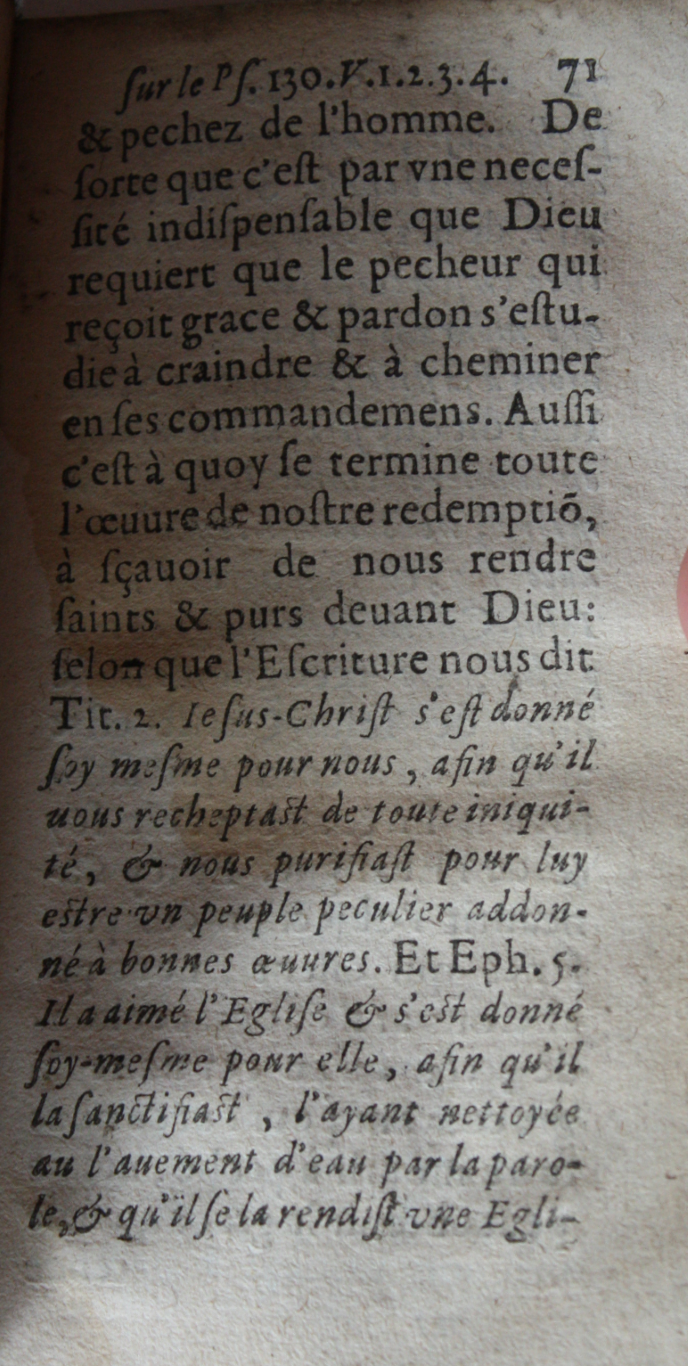 ſur le Pſ. 130. V. 1. 2. 3. 4. 71
& pechez de l'homme. De
ſorte que c'eſt par vne neceſ-
ſité indiſpenſable que Dieu
requiert que le pecheur qui
reçoit grace & pardon s'eſtu-
die à craindre & à cheminer
en ſes commandemens. Auſſi
c'eſt à quoy ſe termine toute
l'œuure de noſtre redemptiõ,
à ſçauoir de nous rendre
ſaints & purs deuant Dieu:
ſelon que l'Eſcriture nous dit
Tit. 2. Ieſus-Chriſt s'eſt donné
ſoy meſme pour nous, afin qu'il
uous recheptaſt de toute iniqui-
té, & nous purifiaſt pour luy
eſtre vn peuple peculier addon-
né à bonnes œuures. Et Eph. 5.
Il a aimé l'Egliſe & s'eſt donné
ſoy-meſme pour elle, afin qu'il
la ſanctifiaſt, l'ayant nettoyée
au l'auement d'eau par la paro-
le, & qu'il ſe la rendiſt vne Egli-